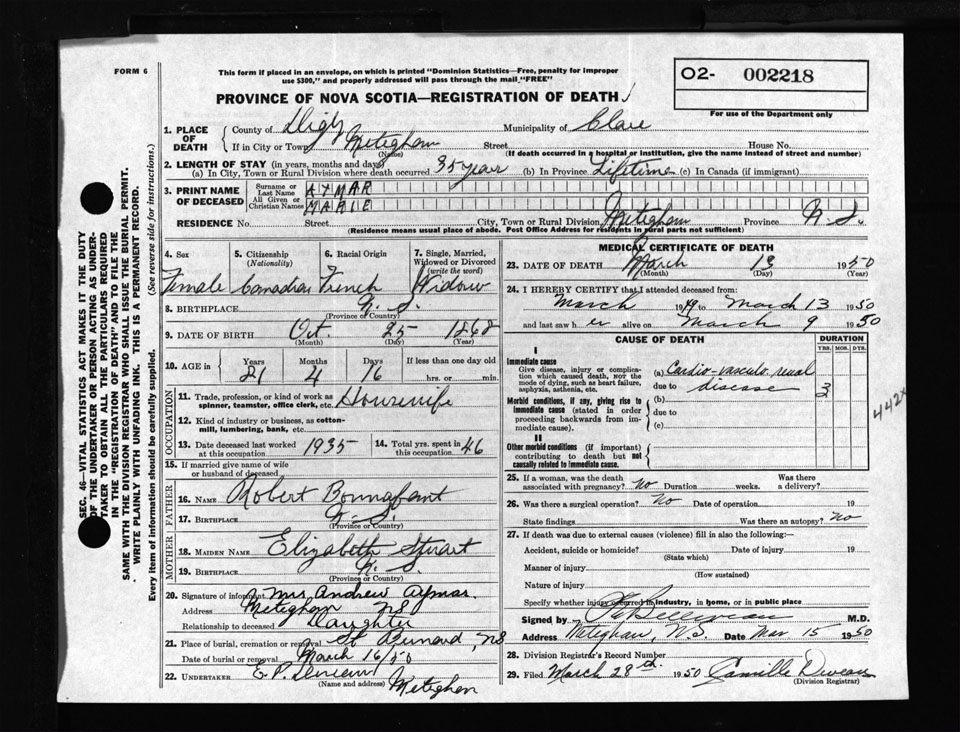 FORM 6
This form if placed in an envelope, on which is printed "Dominion Statistics—Free, penalty for improper
use $300," and properly addressed will pass through the mail "FREE"
O2- 002218
For use of the Department only
PROVINCE OF NOVA SCOTIA—REGISTRATION OF DEATH
1. PLACE OF DEATH
County of Digby Municipality of Clare
If in City or Town Meteghan Street House No.
(Name) (If death occurred in a hospital or institution, give the name instead of street and number)
2. LENGTH OF STAY (in years, months and days)
(a) In City, Town or Rural Division where death occurred 35 years (b) In Province Lifetime (c) In Canada (if immigrant)
3. PRINT NAME OF DECEASED
Surname or Last Name AYMAR
All Given or Christian Names MARIE
RESIDENCE No. Street City, Town or Rural Division Meteghan Province N.S.
(Residence means usual place of abode. Post Office Address for residents in rural parts not sufficient)
4. Sex Female
5. Citizenship (Nationality) Canadian
6. Racial Origin French
7. Single, Married, Widowed or Divorced (write the word) Widow
8. BIRTHPLACE N.S.
(Province or Country)
9. DATE OF BIRTH Oct. 25 1868
(Month) (Day) (Year)
10. AGE in Years Months Days If less than one day old
81 4 16 hrs. or min.
OCCUPATION
11. Trade, profession, or kind of work as spinner, teamster, office clerk, etc. Housewife
12. Kind of industry or business, as cotton-mill, lumbering, bank, etc.
13. Date deceased last worked at this occupation 1935
14. Total yrs. spent in this occupation 46
15. If married give name of wife or husband of deceased
FATHER
16. NAME Robert Bonnafant
17. BIRTHPLACE N.S.
(Province or Country)
MOTHER
18. MAIDEN NAME Elizabeth Stuart
19. BIRTHPLACE N.S
(Province or Country)
20. Signature of informant Mrs Andrew Aymar.
Address Meteghan NS
Relationship to deceased Daughter
21. Place of burial, cremation or removal St Bernard, NS
Date of burial or removal March 16/50
22. UNDERTAKER E. P.
(Name and address) Meteghan
MEDICAL CERTIFICATE OF DEATH
23. DATE OF DEATH March 13 1950
(Month) (Day) (Year)
24. I HEREBY CERTIFY that I attended deceased from:
March 1949 to March 13 1950
and last saw her alive on March 9 1950
CAUSE OF DEATH
DURATION
YRS. MOS. DYS.
I
Immediate cause
Give disease, injury or complication which caused death, NOT the mode of dying, such as heart failure, asphyxia, asthenia, etc.
(a) Cardio-vasculo renal
due to disease 3
Morbid conditions, if any, giving rise to immediate cause (stated in order proceeding backwards from immediate cause).
(b)
due to
(c)
II
Other morbid conditions (if important) contributing to death but not causally related to immediate cause.
25. If a woman, was the death associated with pregnancy? No Duration weeks. Was there a delivery?
26. Was there a surgical operation? No Date of operation 19
State findings Was there an autopsy? No
27. If death was due to external causes (violence) fill in also the following:—
Accident, suicide or homicide? Date of injury 19
(State which)
Manner of injury
(How sustained)
Nature of injury
Specify whether injury occurred in industry, in home, or in public place
Signed by M.D.
Address Meteghan, N.S. Date Mar 15 1950
28. Division Registrar's Record Number
29. Filed March 28th. 1950 Camille
(Division Registrar)
SEC. 46—VITAL STATISTICS ACT MAKES IT THE DUTY
OF THE UNDERTAKER OR PERSON ACTING AS UNDER-
TAKER TO OBTAIN ALL THE PARTICULARS REQUIRED
IN THE "REGISTRATION OF DEATH" AND TO FILE THE
SAME WITH THE DIVISION REGISTRAR WHO SHALL ISSUE THE BURIAL PERMIT.
WRITE PLAINLY WITH UNFADING INK. THIS IS A PERMANENT RECORD.
Every item of information should be carefully supplied. (See reverse side for instructions.)